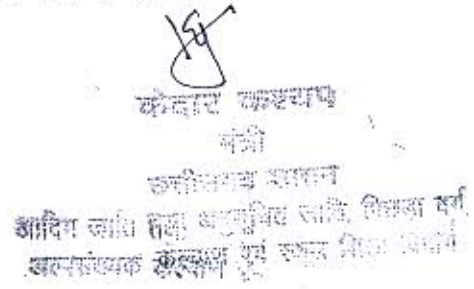 केदार कश्यप
मंत्री
छत्तीसगढ़ शासन
आदिम जाति तथा अनुसूचित जाति, पिछड़ा वर्ग
अल्पसंख्यक कल्याण एवं स्कूल शिक्षा विभाग